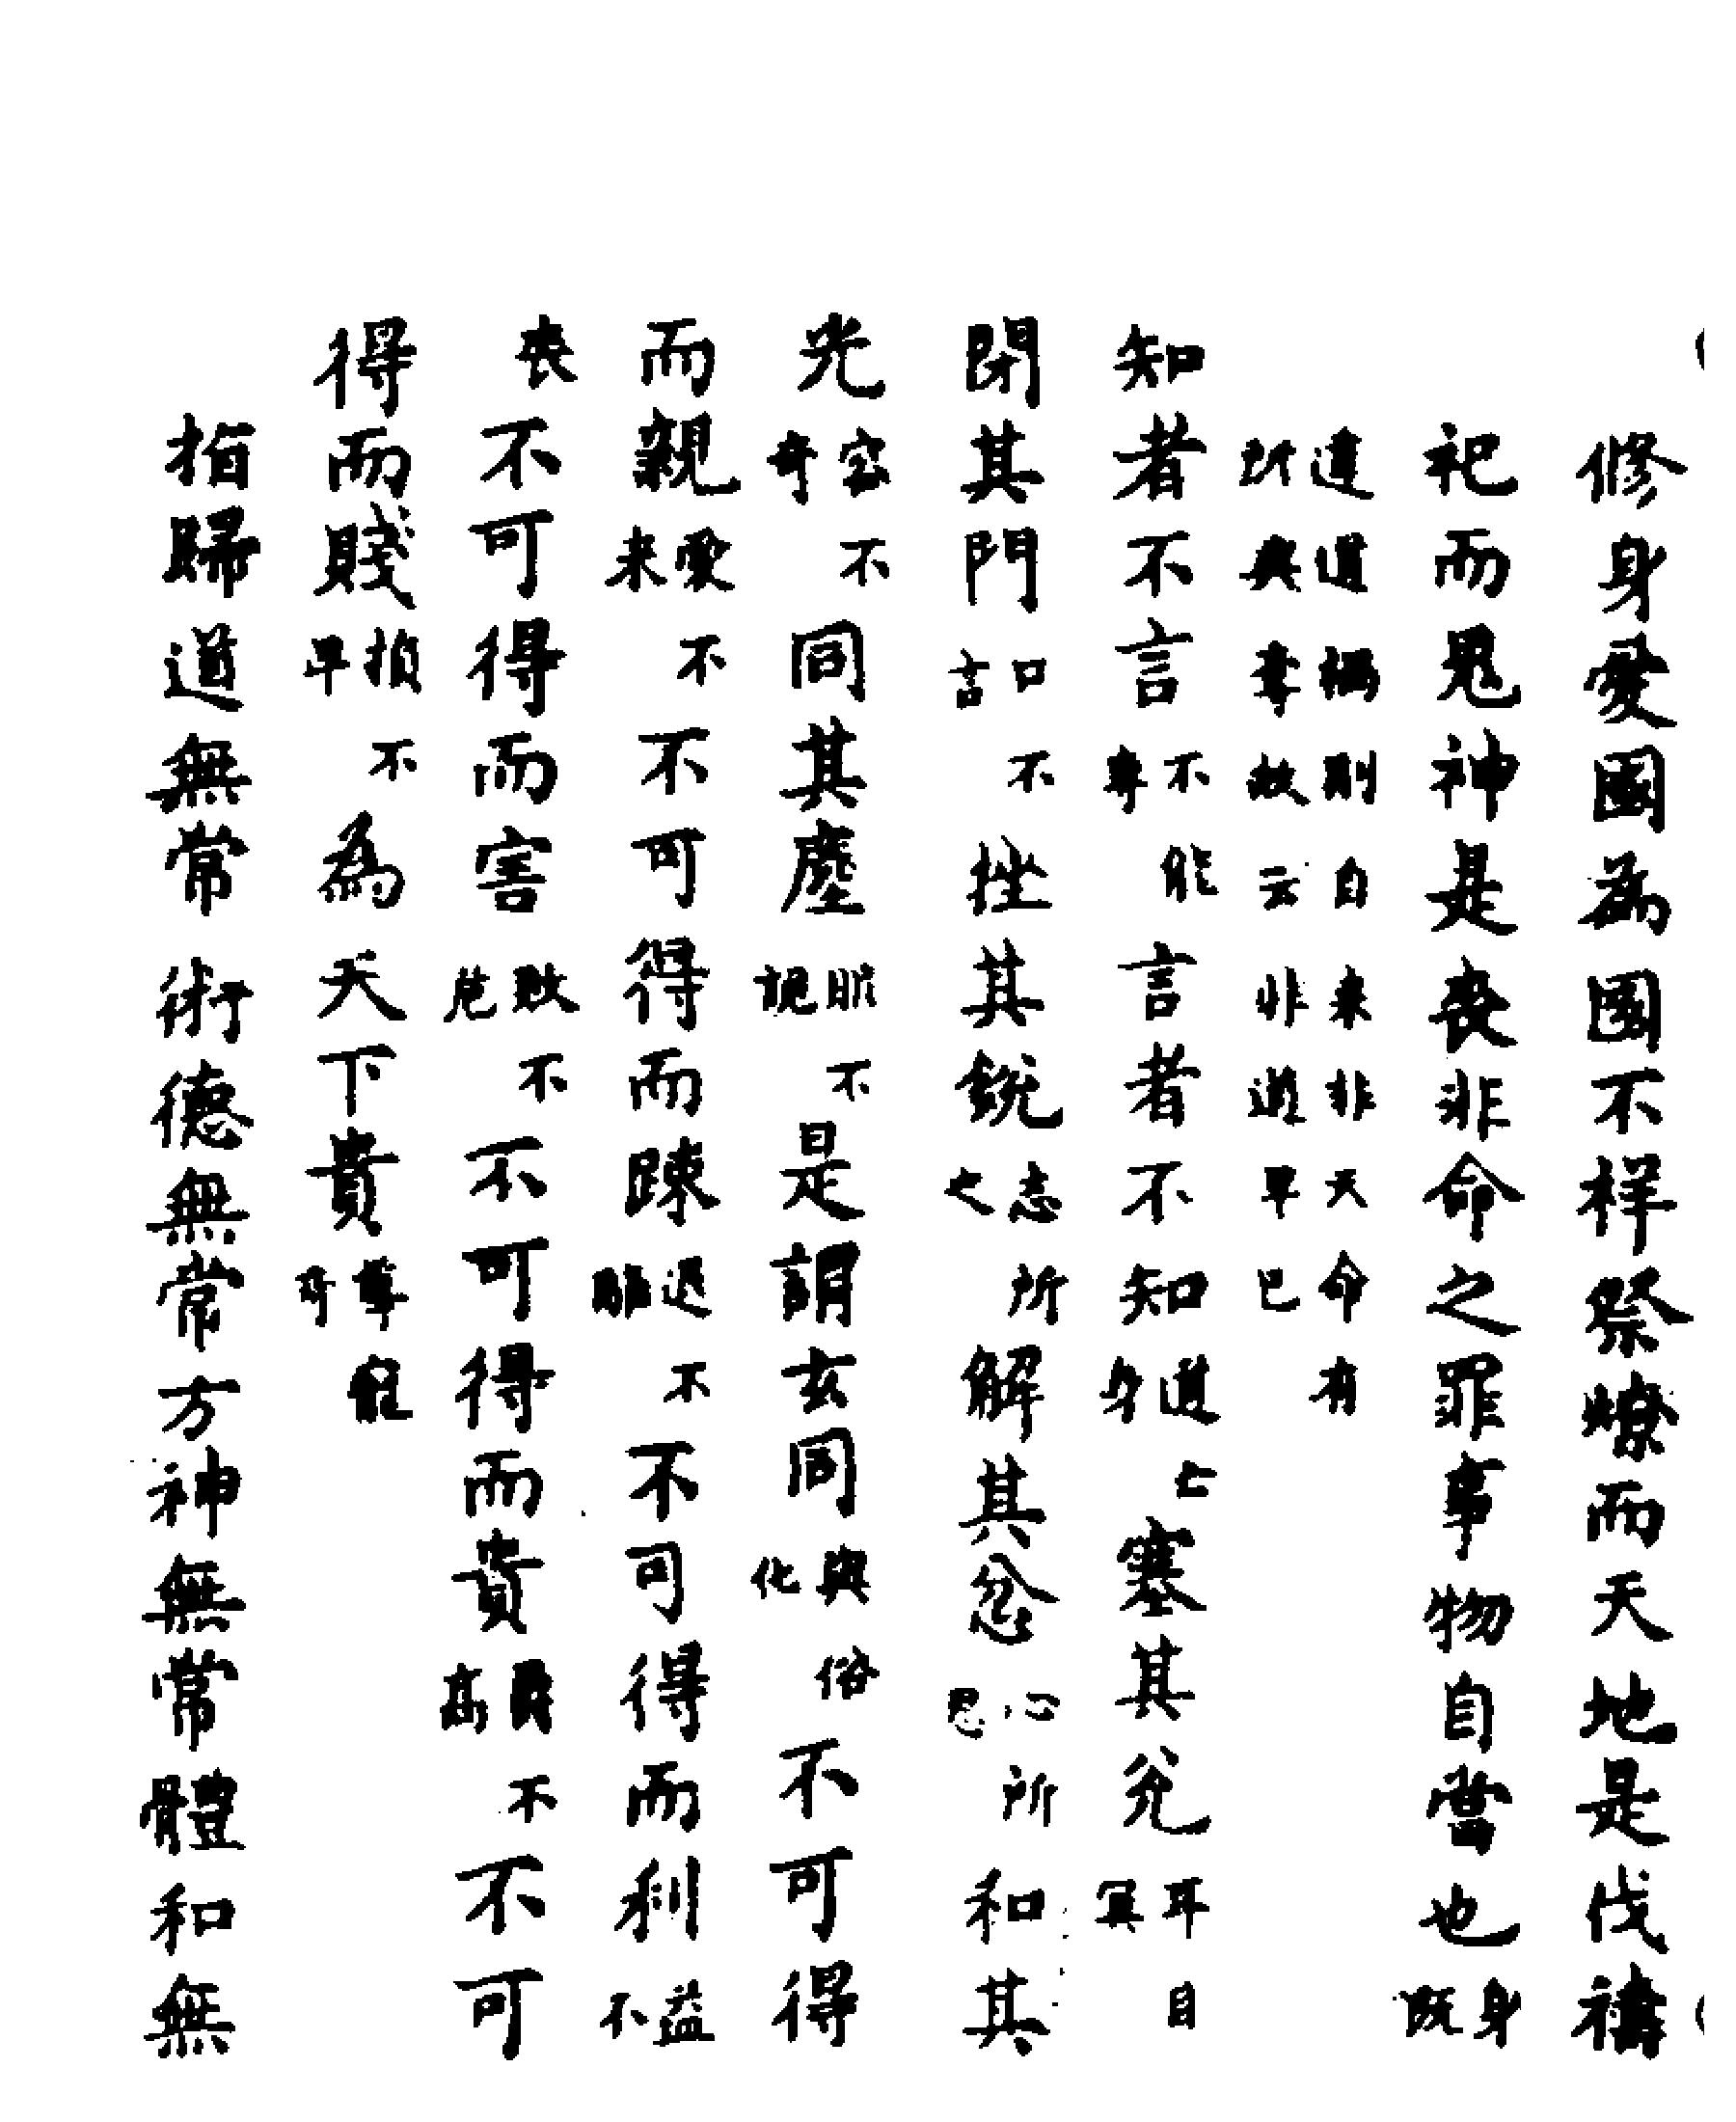 修身愛國為國不祥祭燎而天地是伐禱
祀而鬼神是喪非命之罪事物自當也身既
違道禍則自来非天命有
所與奪故云非過早已
知者不言不能專言者不知道亡身塞其兌耳目冥
閉其門口不言挫其銳志所之解其忿心所思和其
光容不奇同其塵服不詭是謂玄同與俗化不可得
而親愛不来不可得而踈退不離不可得而利益不
喪不可得而害敗不危不可得而貴不高不可
得而賤損不卑為天下貴尊寵奇
指歸道無常術德無常方神無常體和無